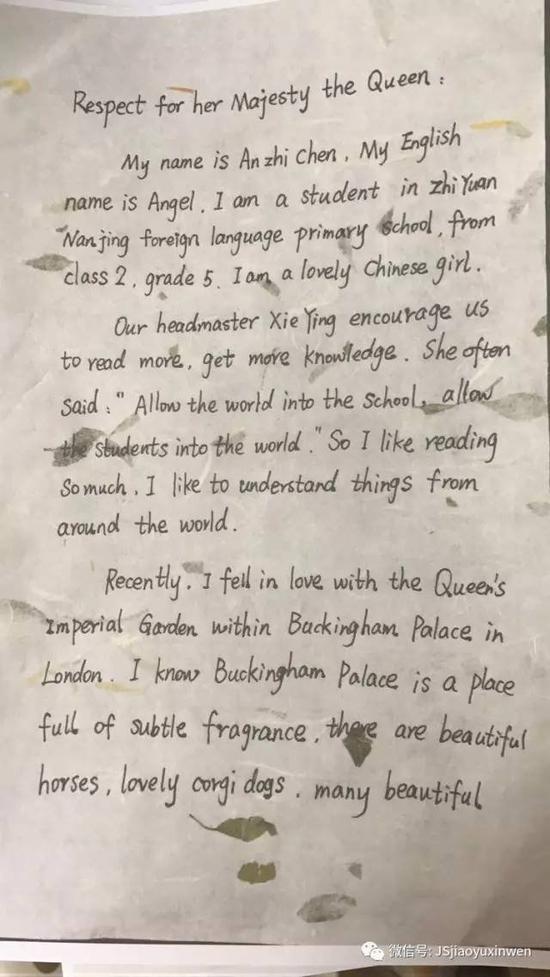 Respect for her Majesty the Queen :
My name is Anzhi Chen. My English
name is Angel. I am a student in zhi Yuan
Nanjing foreign language primary school, from
class 2, grade 5. I am a lovely Chinese girl.
Our headmaster Xie Ying encourage us
to read more, get more knowledge. She often
said : " Allow the world into the school, allow
the students into the world ." So I like reading
so much. I like to understand things from
around the world.
Recently. I fell in love with the Queen's
Imperial Garden within Buckingham Palace in
London. I know Buckingham Palace is a place
full of subtle fragrance, there are beautiful
horses, lovely corgi dogs. many beautiful
微信号: JSjiaoyuxinwen